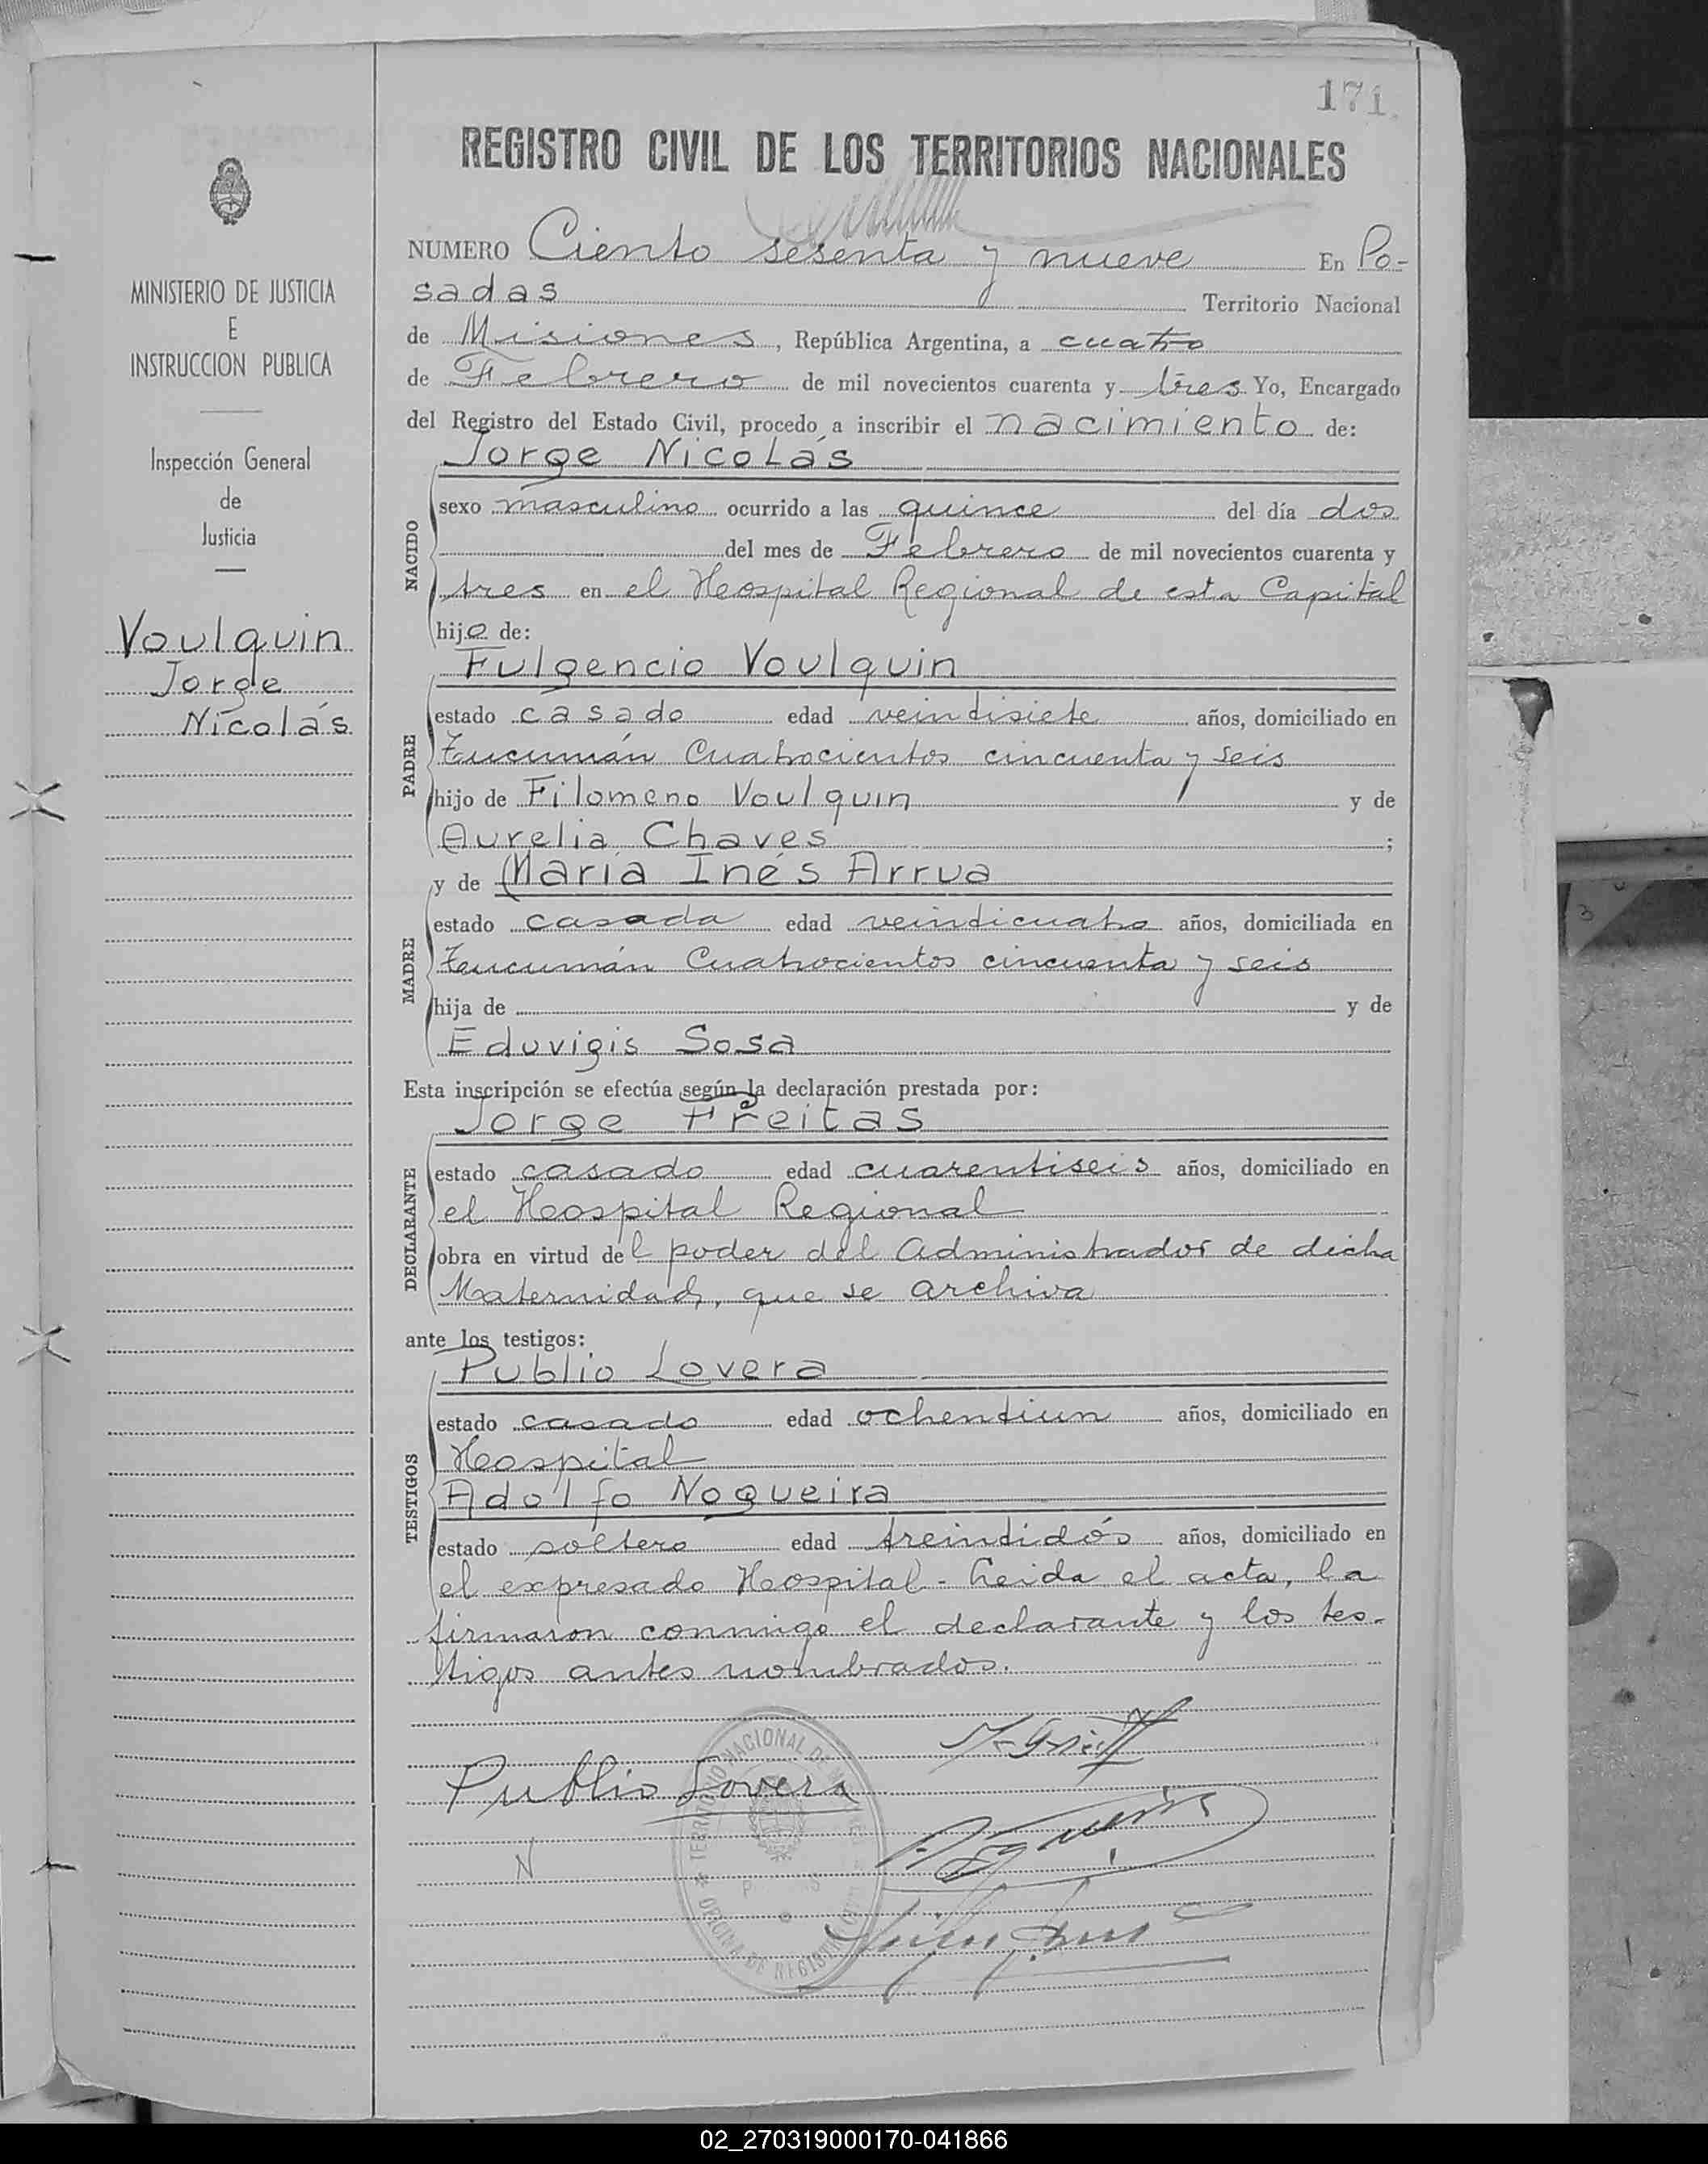 171
REGISTRO CIVIL DE LOS TERRITORIOS NACIONALES
MINISTERIO DE JUSTICIA
E
INSTRUCCION PUBLICA
Inspección General
de
Justicia
Voulquin
Jorge
Nicolás
NUMERO Ciento sesenta y nueve En Po-
sadas Territorio Nacional
de Misiones, República Argentina, a cuatro
de Febrero de mil novecientos cuarenta y tres Yo, Encargado
del Registro del Estado Civil, procedo a inscribir el nacimiento de:
Jorge Nicolás
NACIDO
sexo masculino ocurrido a las quince del día dos
del mes de Febrero de mil novecientos cuarenta y
tres en el Hospital Regional de esta Capital
hijo de:
Fulgencio Voulquin
PADRE
estado casado edad veindisiete años, domiciliado en
Tucumán Cuatrocientos cincuenta y seis
hijo de Filomeno Voulquin y de
Aurelia Chaves ;
y de María Inés Arrua
MADRE
estado casada edad veindicuatro años, domiciliada en
Tucumán Cuatrocientos cincuenta y seis
hija de y de
Eduvigis Sosa
Esta inscripción se efectúa según la declaración prestada por:
Jorge Freitas
DECLARANTE
estado casado edad cuarentiseis años, domiciliado en
el Hospital Regional
obra en virtud del poder del Administrador de dicha
Maternidad, que se archiva
ante los testigos:
Publio Lovera
TESTIGOS
estado casado edad ochentiun años, domiciliado en
Hospital
Adolfo Nogueira
estado soltero edad treintidós años, domiciliado en
el expresado Hospital - Leida el acta, la
firmaron conmigo el declarante y los tes-
tigos antes nombrados.
Publio Lovera
TERRITORIO NACIONAL DE
OFICINA DE REGISTRO
N
02_270319000170-041866